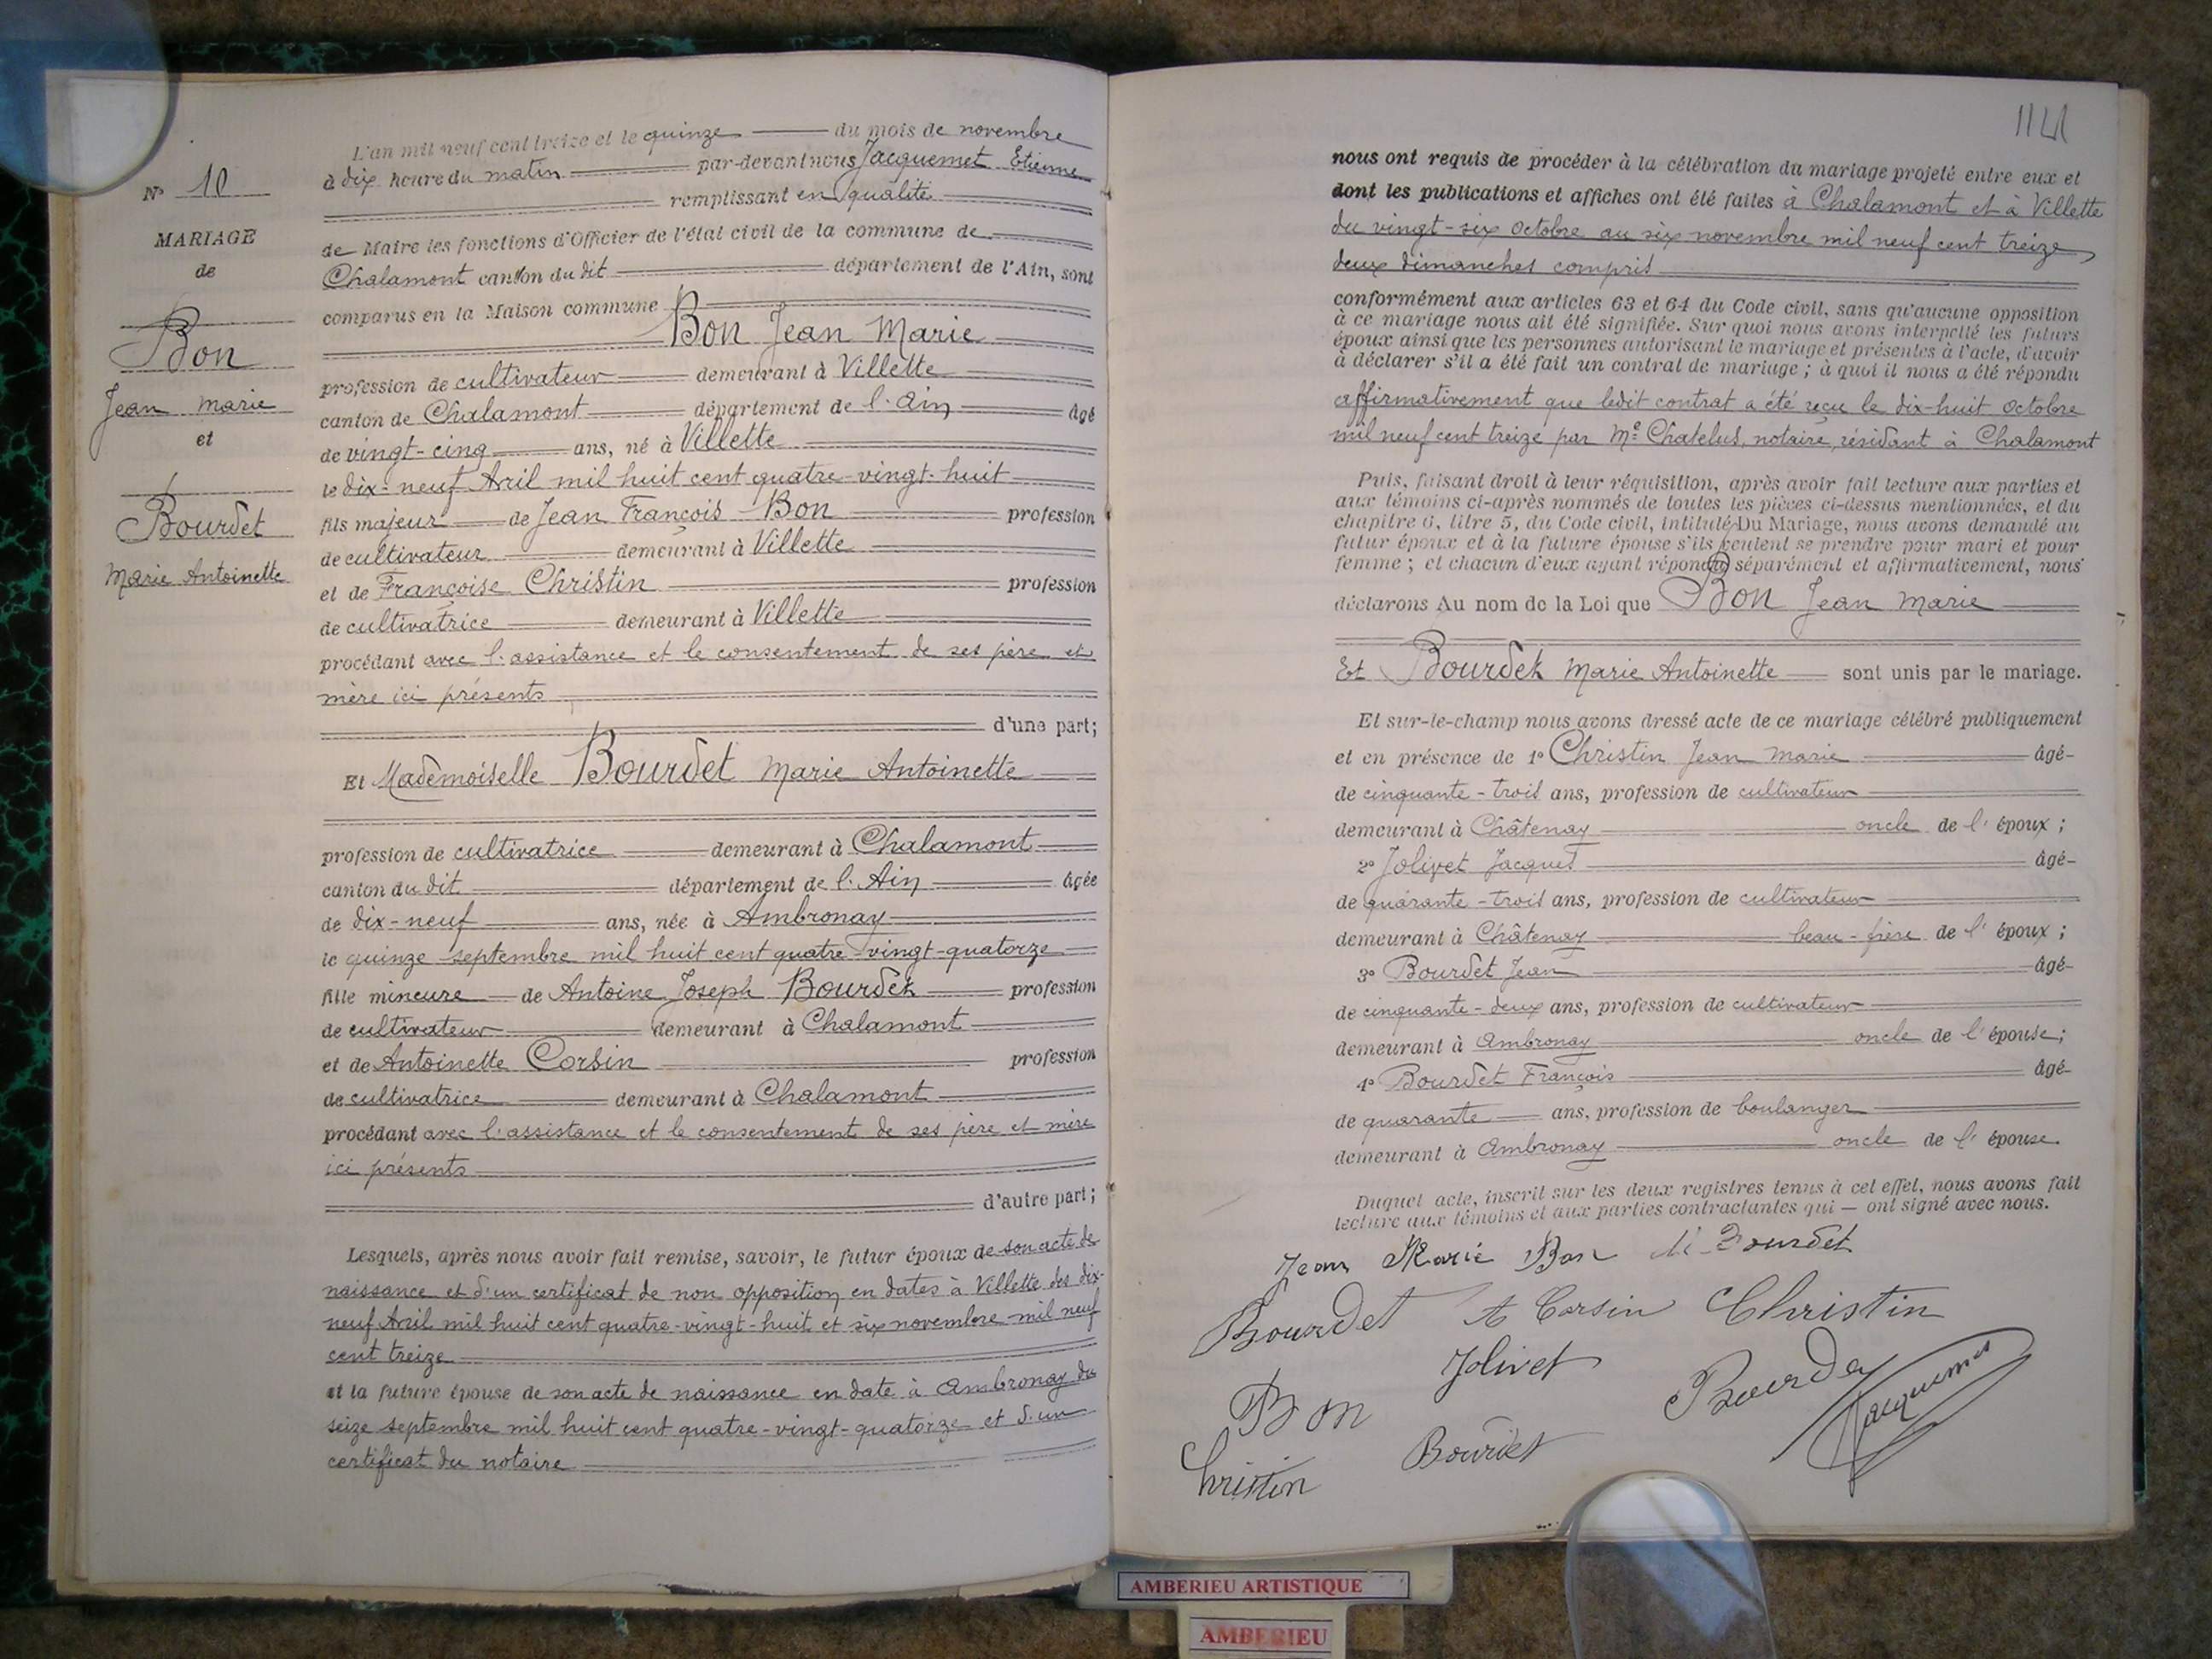 N° 10
MARIAGE
de
Bon
Jean Marie
et
Bourdet
Marie Antoinette
L'an mil neuf cent treize et le quinze du mois de novembre
à dix heure du matin par-devant nous Jacquemet Etienne
remplissant en qualité
de Maire les fonctions d'Officier de l'état civil de la commune de
Chalamont canton du dit département de l'Ain, sont
comparus en la Maison commune
Bon Jean Marie
profession de cultivateur demeurant à Villette
canton de Chalamont département de l'Ain âgé
de vingt-cinq ans, né à Villette
le dix-neuf Avril mil huit cent quatre-vingt-huit
fils majeur de Jean François Bon profession
de cultivateur demeurant à Villette
et de Françoise Christin profession
de cultivatrice demeurant à Villette
procédant avec l'assistance et le consentement de ses père et
mère ici présents
d'une part;
Et Mademoiselle Bourdet Marie Antoinette
profession de cultivatrice demeurant à Chalamont
canton du dit département de l'Ain âgée
de dix-neuf ans, née à Ambronay
le quinze septembre mil huit cent quatre-vingt-quatorze
fille mineure de Antoine Joseph Bourdet profession
de cultivateur demeurant à Chalamont
et de Antoinette Corsin profession
de cultivatrice demeurant à Chalamont
procédant avec l'assistance et le consentement de ses père et mère
ici présents
d'autre part;
Lesquels, après nous avoir fait remise, savoir, le futur époux de son acte de
naissance et d'un certificat de non opposition en dates à Villette des dix-
neuf Avril mil huit cent quatre-vingt-huit et six novembre mil neuf
cent treize
et la future épouse de son acte de naissance en date à Ambronay du
seize septembre mil huit cent quatre-vingt-quatorze et d'un
certificat du notaire
nous ont requis de procéder à la célébration du mariage projeté entre eux et
dont les publications et affiches ont été faites à Chalamont et à Villette
du vingt-six Octobre au six novembre mil neuf cent treize
deux dimanches compris
conformément aux articles 63 et 64 du Code civil, sans qu'aucune opposition
à ce mariage nous ait été signifiée. Sur quoi nous avons interpellé les futurs
époux ainsi que les personnes autorisant le mariage et présentes à l'acte, d'avoir
à déclarer s'il a été fait un contrat de mariage ; à quoi il nous a été répondu
affirmativement que ledit contrat a été reçu le dix-huit Octobre
mil neuf cent treize par Me Chatelus, notaire, résidant à Chalamont
Puis, faisant droit à leur réquisition, après avoir fait lecture aux parties et
aux témoins ci-après nommés de toutes les pièces ci-dessus mentionnées, et du
chapitre 6, titre 5, du Code civil, intitulé Du Mariage, nous avons demandé au
futur époux et à la future épouse s'ils veulent se prendre pour mari et pour
femme ; et chacun d'eux ayant répondu séparément et affirmativement, nous
déclarons Au nom de la Loi que Bon Jean Marie
Et Bourdet Marie Antoinette sont unis par le mariage.
Et sur-le-champ nous avons dressé acte de ce mariage célébré publiquement
et en présence de 1° Christin Jean Marie âgé
de cinquante-trois ans, profession de cultivateur
demeurant à Châtenay oncle de l'époux ;
2° Jolivet Jacques âgé
de quarante-trois ans, profession de cultivateur
demeurant à Châtenay beau-frère de l'époux ;
3° Bourdet Jean âgé
de cinquante-deux ans, profession de cultivateur
demeurant à Ambronay oncle de l'épouse ;
4° Bourdet François âgé
de quarante ans, profession de boulanger
demeurant à Ambronay oncle de l'épouse.
Duquel acte, inscrit sur les deux registres tenus à cet effet, nous avons fait
lecture aux témoins et aux parties contractantes qui — ont signé avec nous.
Jean Marie Bon M Bourdet
Bourdet A Corsin Christin
Jolivet
Bon Bourdet Jacquemet
Christin Bourdet
AMBERIEU ARTISTIQUE
AMBERIEU